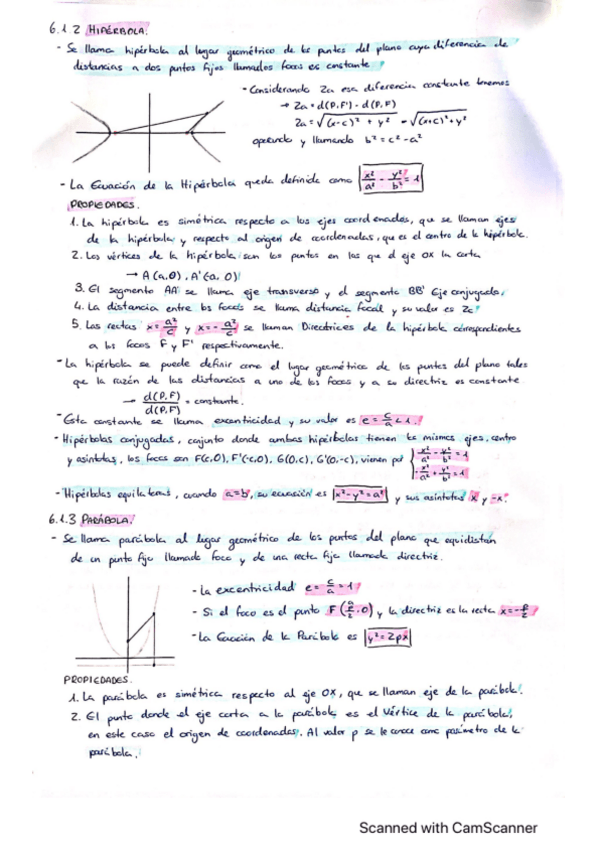 6.1.2 HIPÉRBOLA.
- Se llama hipérbola al lugar geométrico de los puntos del plano cuya diferencia de
distancias a dos puntos fijos llamados focos es constante
- Considerando 2a esa diferencia constante tenemos
→ 2a = d(P,F') - d(P,F)
2a = √(x-c)² + y² - √(x+c)² + y²
operando y llamando b² = c² - a²
- La Ecuación de la Hipérbola queda definida como x²/a² - y²/b² = 1
PROPIEDADES.
1. La hipérbola es simétrica respecto a los ejes coordenados, que se llaman ejes
de la hipérbola y respecto al origen de coordenadas, que es el centro de la hipérbola.
2. Los vértices de la hipérbola son los puntos en los que el eje OX la corta
→ A(a,0), A'(-a, 0)
3. El segmento AA' se llama eje transverso y el segmento BB' Eje conjugado.
4. La distancia entre los focos se llama distancia focal y su valor es 2c
5. Las rectas x = a²/c y x = - a²/c se llaman Directrices de la hipérbola correspondientes
a los focos F y F' respectivamente.
- La hipérbola se puede definir como el lugar geométrico de los puntos del plano tales
que la razón de las distancias a uno de los focos y a su directriz es constante
→ d(P,F)/d(P,F) = constante.
- Esta constante se llama excentricidad y su valor es e = c/a < 1.
- Hipérbolas conjugadas, conjunto donde ambas hipérbolas tienen los mismos ejes, centro
y asíntotas, los focos son F(c,0), F'(-c,0), G(0,c), G'(0,-c), vienen por { x²/a² - y²/b² = 1
-x²/a² + y²/b² = 1
- Hipérbolas equiláteras, cuando a=b, su ecuación es x²-y² = a² y sus asíntotas x y -x.
6.1.3 PARÁBOLA.
- Se llama parábola al lugar geométrico de los puntos del plano que equidistan
de un punto fijo llamado foco y de una recta fija llamada directriz.
- La excentricidad e = c/a = 1
- Si el foco es el punto F(p/2, 0) y la directriz es la recta x = -p/2
- La Ecuación de la Parábola es y² = 2px
PROPIEDADES.
1. La parábola es simétrica respecto al eje OX, que se llaman eje de la parábola.
2. El punto donde el eje corta a la parábola es el vértice de la parábola,
en este caso el origen de coordenadas. Al valor p se le conoce como parámetro de la
parábola.
Scanned with CamScanner